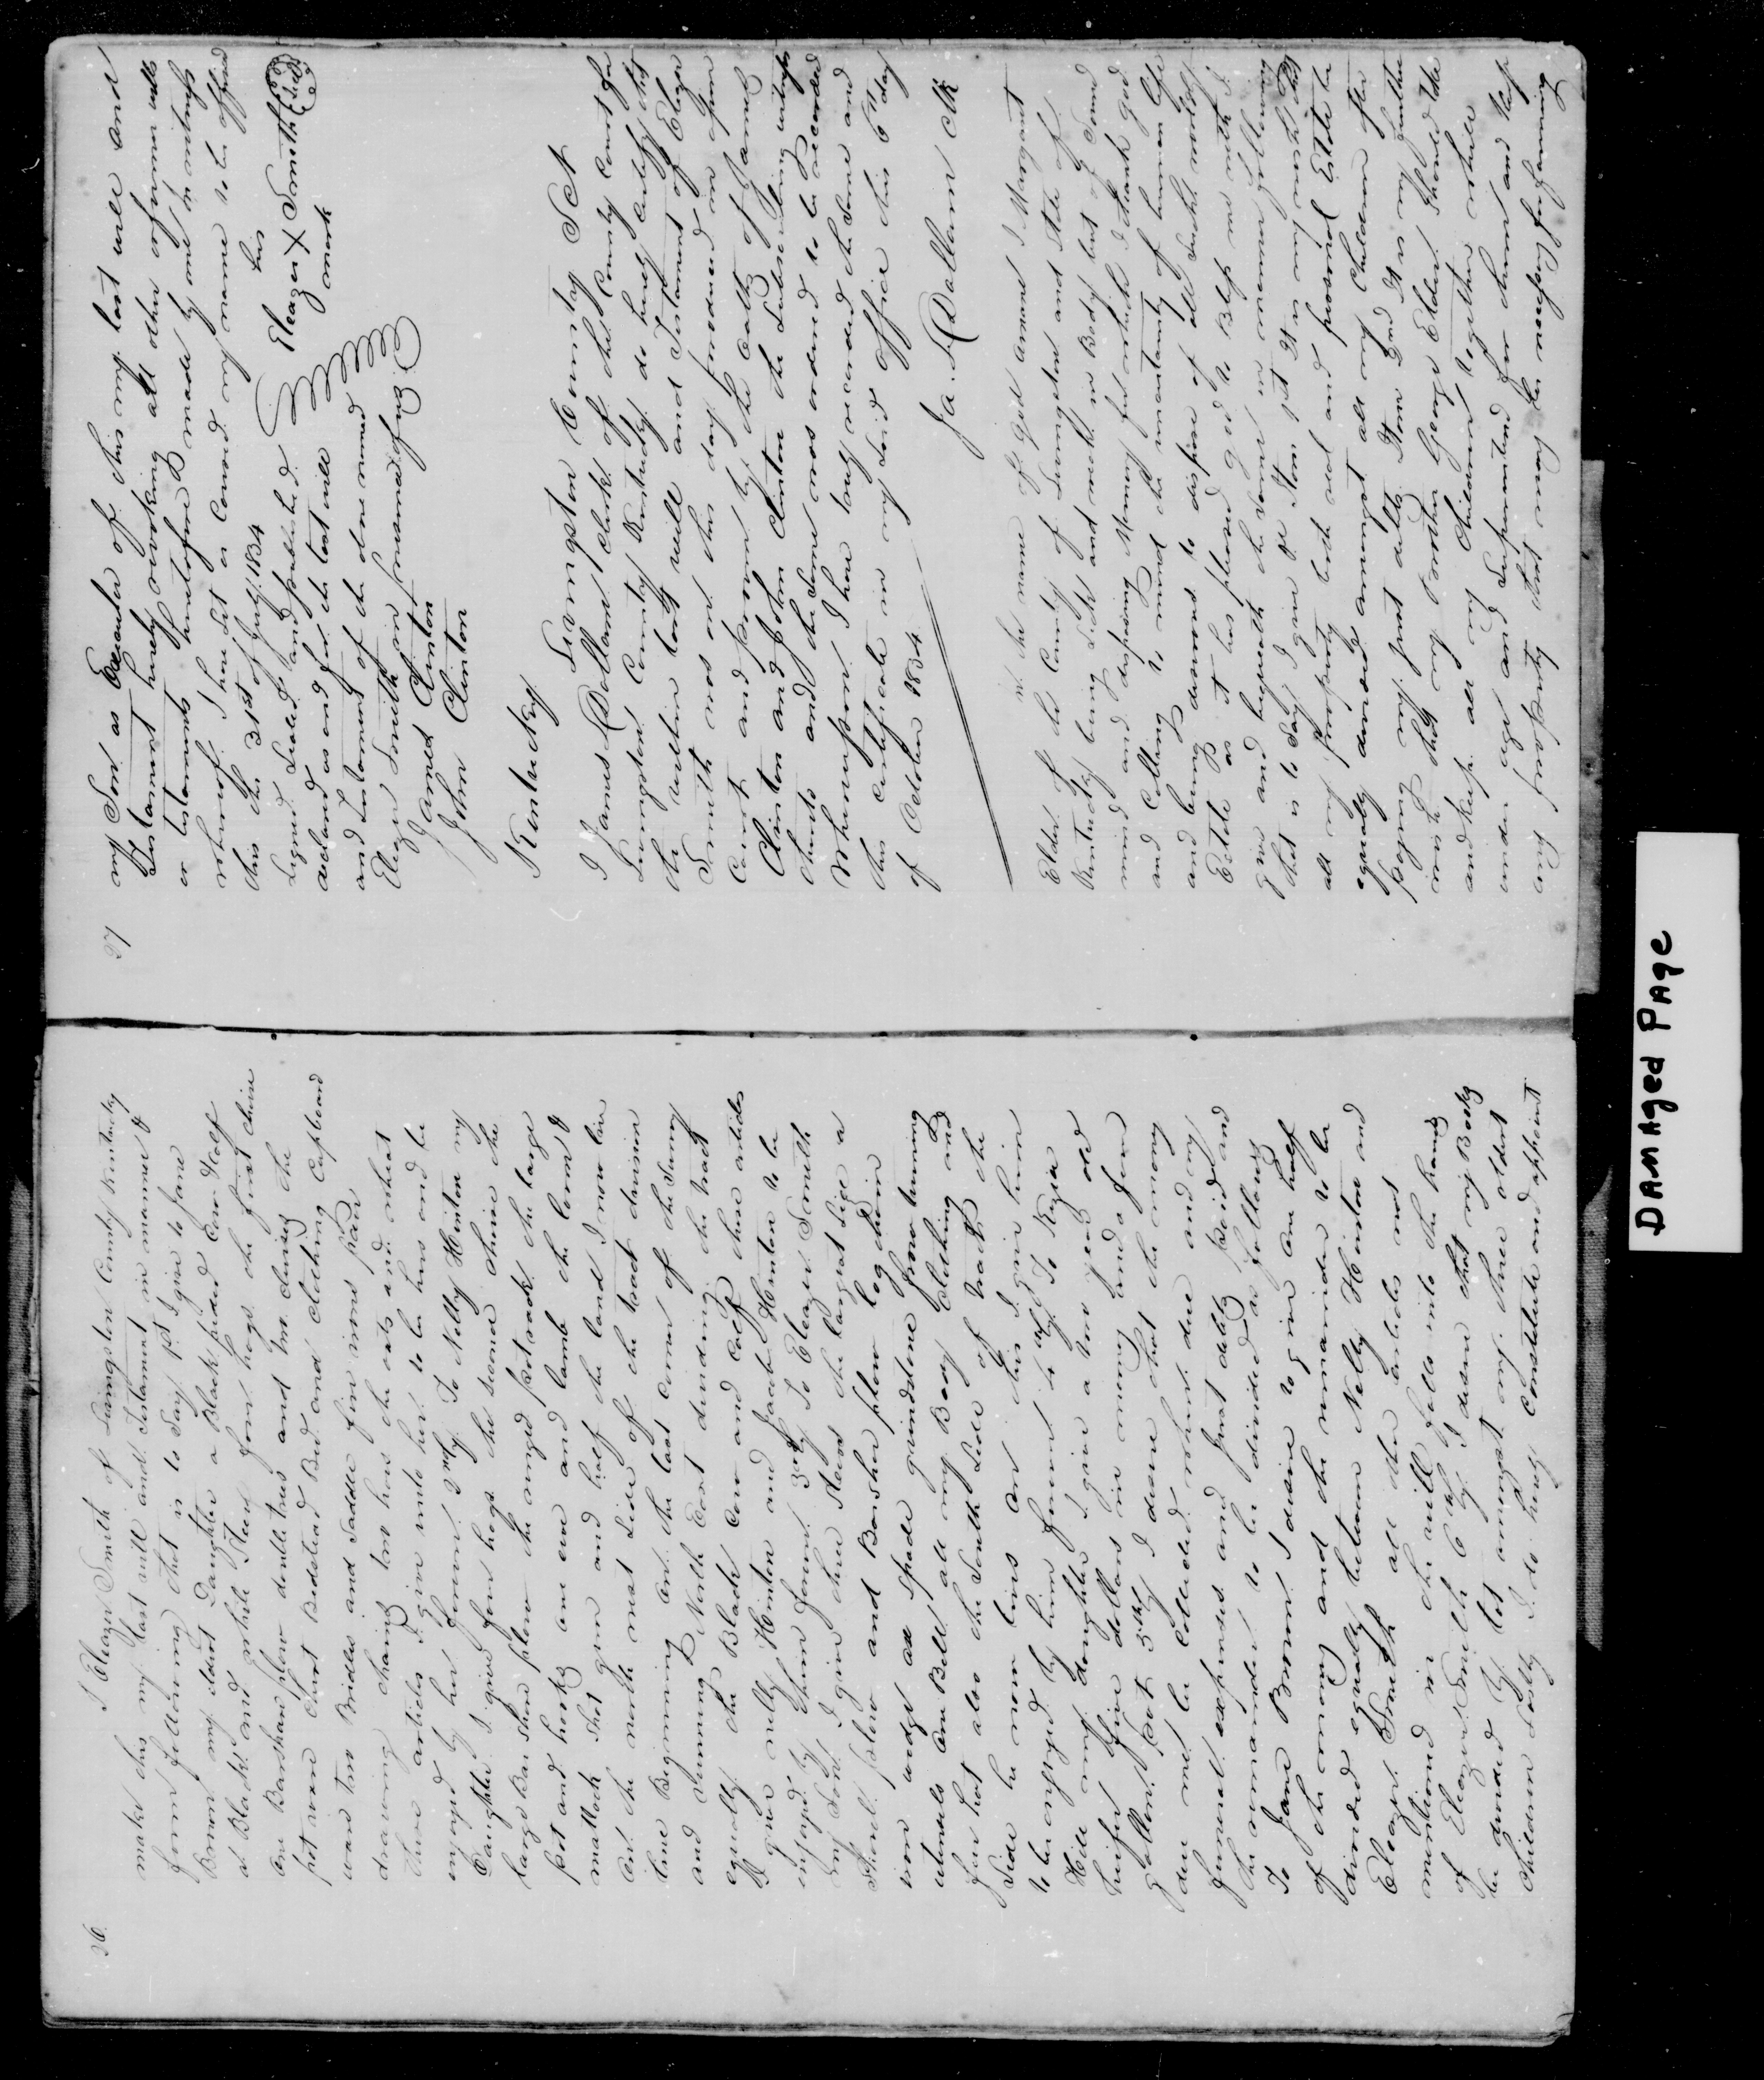 26.
I Eleazer Smith of Livingston County Kentucky
make this my last will and Testament in manner &
form following that is to Say 1st I give to Jane
Brown my eldest Daughter a Black pided Cow Half
a Black and white Steer four hogs the first choice
one Barshare plow doubletrees and two clevis the
pot ware Chest Bedstead Bed and clothing Cupboard
ware two Bridles and Saddle five irons pair
drawing chains two hoes the oats and wheat
these articles I give unto her to be hers and be
enjoyed by her forever. 2ndly To Nelly Hinton my
Daughter I give four hogs the second choice the
large Bar Shear plow the small pot rack the large
pot and hooks one ewe and lamb the loom &
mattock Shot gun and half the land I now live
on the north west Side of the tract division
line Beginning on the last corner of the Survey
and running North East dividing the tract
equally the Black Cow and calf these articles
I give nelly Hinton and Jacob Hinton to be
enjoyed by them forever 3rdly To Eleazer Smith
my Son I give three Steers the largest Size a
Shovel plow and Barsher plow log chain
iron wedge axe Spade grindstone frow turning
utensils one Bell all my Body Clothing and
fur hat also the South Side of tract the
Side he now lives on this I give him
to be enjoyed by him forever 4thly To Kezia
Hill my daughter I give a two year old
heifer five dollars in money and a four
gallon pot 5thly I desire that the money
due me be collected when due and my
funeral expenses and Just debts paid and
the remainder to be divided as follows
To Jane Brown I desire to give one half
of the money and the remainder to be
divided equally between Nelly Hinton and
Eleazer Smith all other articles not
mentioned in the will falls into the hands
of Eleazer Smith 6thly I desire that my Body
be buried by lot amongst my three oldest
children lastly I do hereby Constitute and appoint
27
my Son as Executor of this my last will and
Testament hereby revoking all other or former wills
or testaments heretofore made by me in witness
whereof I have Set or Caused my name to be affixed
this the 31st of July 1834
Signed Sealed and published
declared as and for the last will
and Testament of the above named
Eleazer Smith in presence of us
his
Eleazer X Smith Seal
mark
James Clinton
John Clinton
Kentucky
Livingston County Sct
I James L Dallam Clerk of the County Court for
Livingston County Kentucky do hereby certify that
the within last will and Testament of Eleazer
Smith was on this day produced in open
Court and proven by the oaths of James
Clinton and John Clinton the Subscribing witnesses
thereto and the Same was ordered to be recorded
Whereupon I have truly recorded the Same and
this certificate in my Said office this 6th day
of October 1834.
Ja. L Dallam Clk
In the name of god amen I Margaret
Elder of the County of Livingston and State of
Kentucky being Sick and weak in Body but of Sound
mind and disposing Memory for which I thank god
and Calling to mind the uncertainty of human life
and being desirous to dispose of all Such worldly
Estate as it has pleased god to bless me with I
give and bequeath the Same in manner following
that is to Say I give &c Item 1st It is my wish that
all my property both real and personal Estate be
equally divided amongst all my Children after
paying my just debts Item 2nd It is my further
wish that my Brother George Elder Should take
and keep all my Children together while
under age and Superintend for them and Keep
any property that may be necessary for farming
DAMAGED PAGE